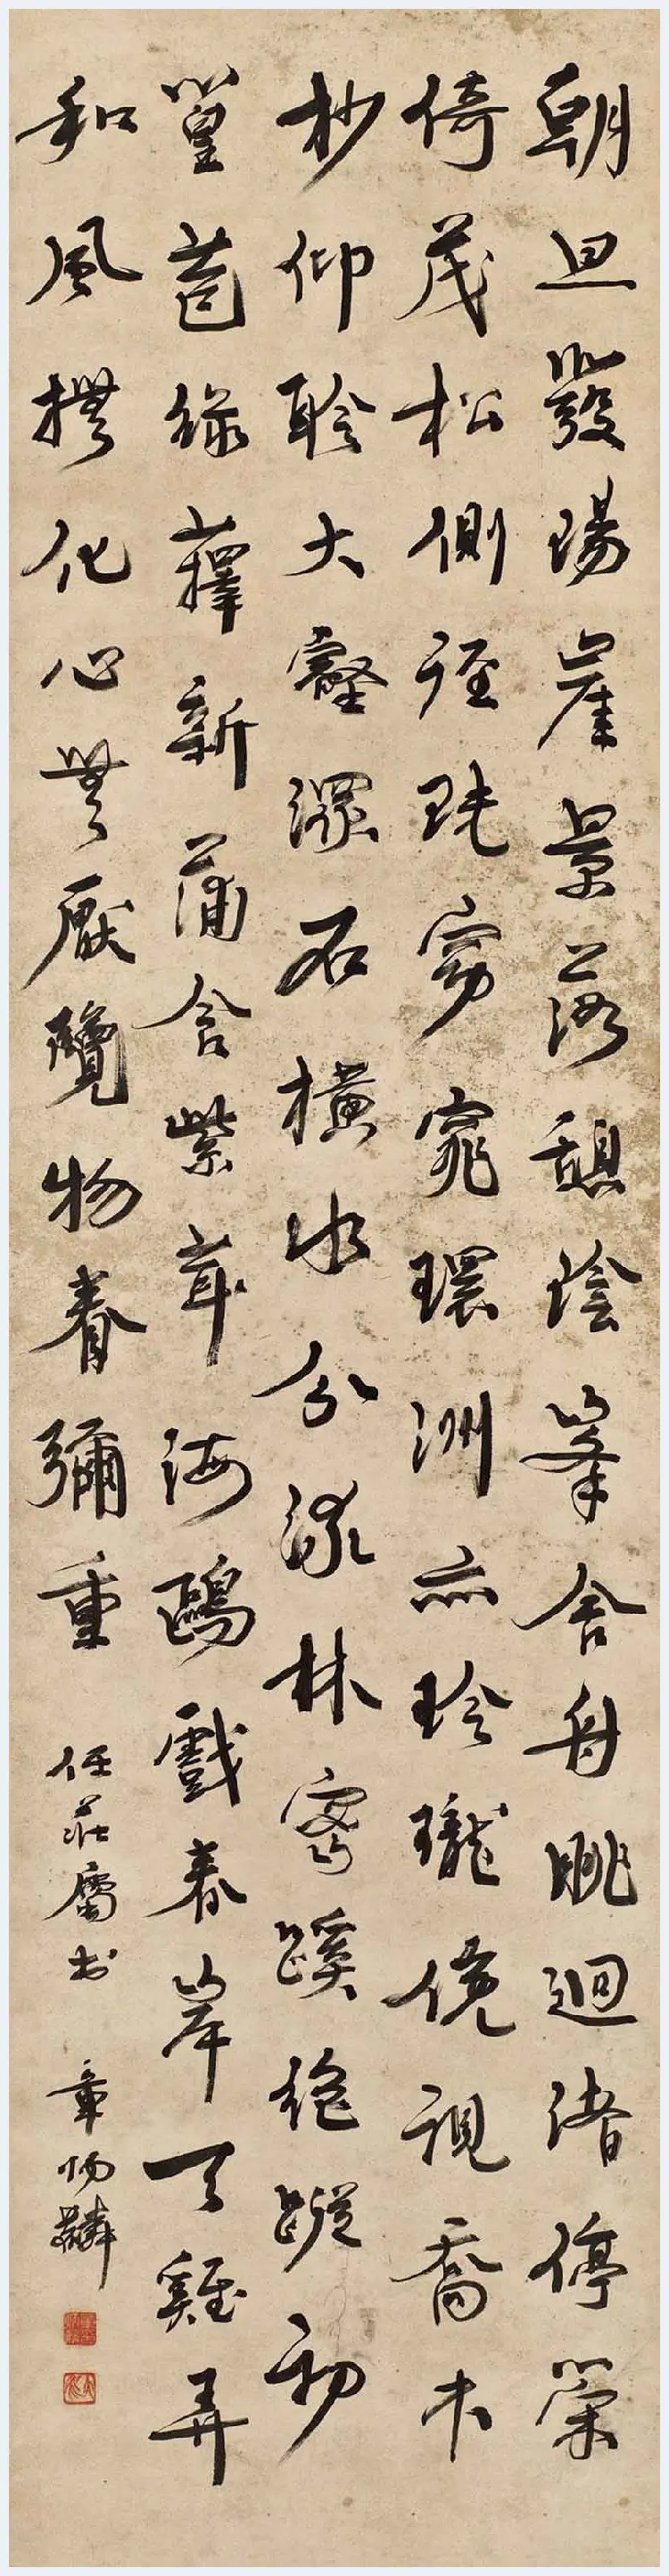 朝旦發陽崖景落憩陰峯舍舟眺迴渚停策
倚茂松側徑既窈窕環洲亦玲瓏俛視喬木
杪仰聆大壑灇石橫水分流林密蹊絕蹤初
篁苞綠籜新蒲含紫茸海鷗戲春岸天雞弄
和風撫化心無厭覽物眷彌重
任莊屬書 章